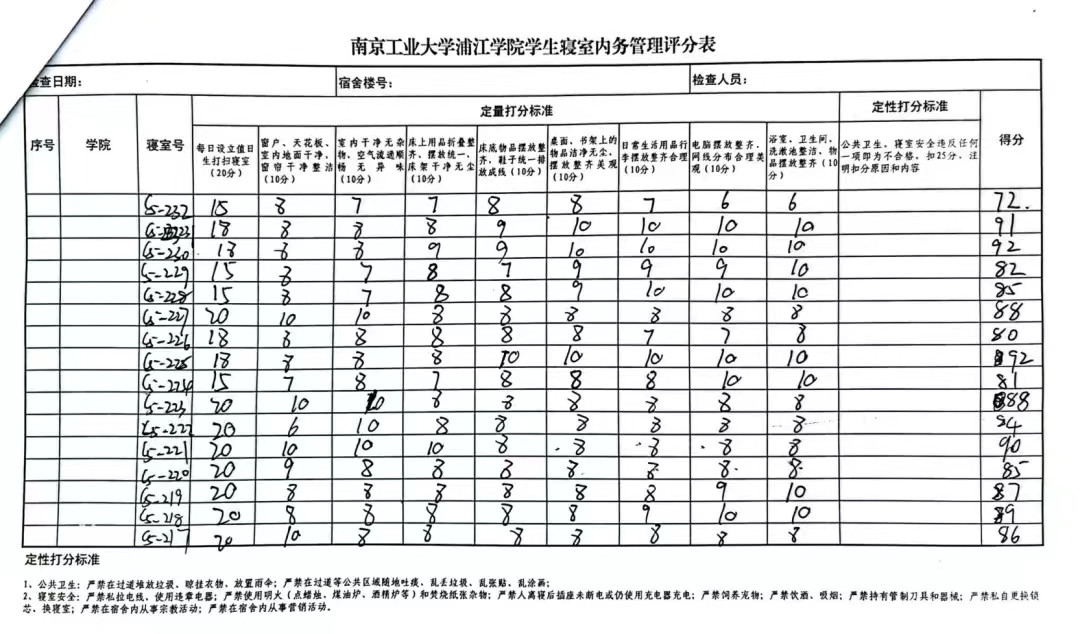 南京工业大学浦江学院学生寝室内务管理评分表
检查日期： 宿舍楼号： 检查人员：
序号 学院 寝室号 定量打分标准 定性打分标准 得分
每日设立值日生打扫寝室（20分） 窗户、天花板、室内地面干净，窗帘干净整洁（10分） 室内干净无杂物，空气流通顺畅无异味（10分） 床上用品折叠整齐、摆放统一，床架干净无尘（10分） 床底物品摆放整齐，鞋子统一排放成线（10分） 桌面、书架上的物品洁净无尘，摆放整齐美观（10分） 日常生活用品行李摆放整齐合理（10分） 电脑摆放整齐，网线分布合理美观（10分） 浴室、卫生间、洗漱池整洁，物品摆放整齐（10分） 公共卫生、寝室安全违反任何一项即为不合格，扣25分，注明扣分原因和内容
G5-232 15 8 7 7 8 8 7 6 6 72.
18 8 8 8 9 10 10 10 10 91
G5-230 18 8 8 9 9 10 10 10 10 92
G5-229 15 8 7 8 7 9 9 9 10 82
G5-228 15 8 7 8 8 9 10 10 10 85
G5-227 20 10 10 8 8 8 8 8 8 88
G5-226 18 8 8 8 8 8 7 7 8 80
G5-225 18 8 8 8 10 10 10 10 10 92
G5-224 15 7 8 7 8 8 8 10 10 81
G5-223 20 10 10 8 8 8 8 8 8 88
G5-222 20 6 10 8 8 8 8 8 8 84
G5-221 20 10 10 10 8 8 8 8 8 90
G5-220 20 9 8 8 8 8 8 8 8 85
G5-219 20 8 8 8 8 8 8 9 10 87
G5-218 20 8 8 8 8 8 9 10 10 89
G5-217 20 10 8 8 8 8 8 8 8 86
定性打分标准
1、公共卫生：严禁在过道堆放垃圾、晾挂衣物、放置雨伞；严禁在过道等公共区域随地吐痰、乱丢垃圾、乱张贴、乱涂画；
2、寝室安全：严禁私拉电线、使用违章电器；严禁使用明火（点蜡烛、煤油炉、酒精炉等）和焚烧纸张杂物；严禁人离寝后插座未断电或仍使用充电器充电；严禁饲养宠物；严禁饮酒、吸烟；严禁持有管制刀具和器械；严禁私自更换锁
芯、换寝室；严禁在宿舍内从事宗教活动；严禁在宿舍内从事营销活动。